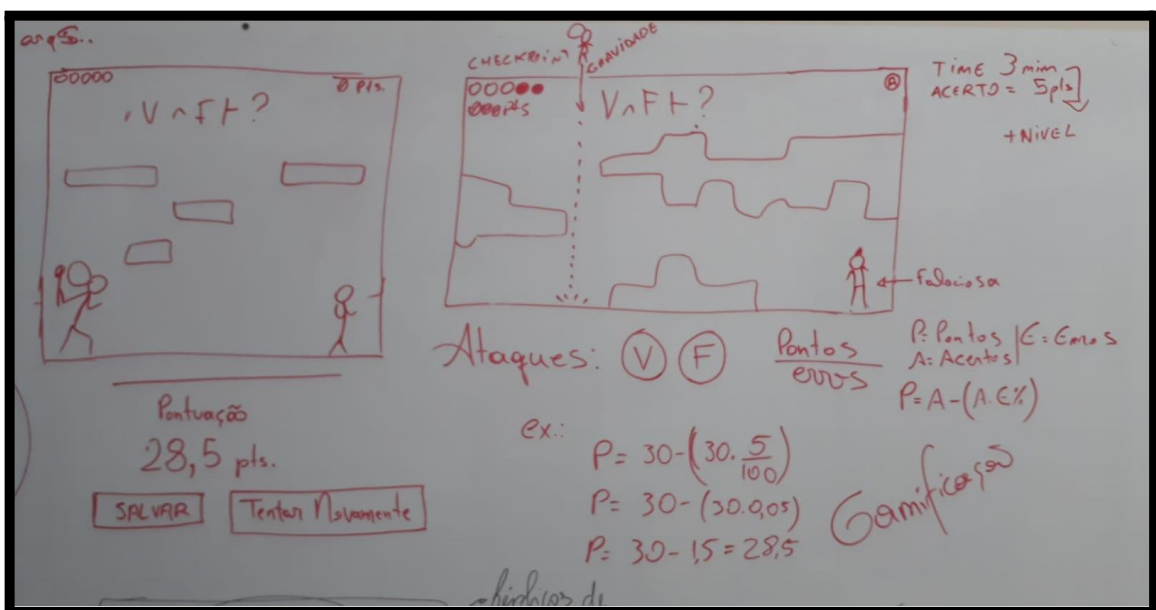 OOOOO
0 pts.
V ∧ F ⊢ ?
Pontuação
28,5 pts.
SALVAR
Tentar Novamente
CHECKPOINT
GRAVIDADE
OOO●●
000pts
V ∧ F ⊢ ?
TIME 3 min
ACERTO = 5pts
+ NIVEL
Falaciosa
Ataques: V F
Pontos
erros
P: Pontos | E: Erros
A: Acertos
P = A - (A.E%)
ex.:
P = 30 - (30. 5/100)
P = 30 - (30.0,05)
P = 30 - 1,5 = 28,5
Gamificação